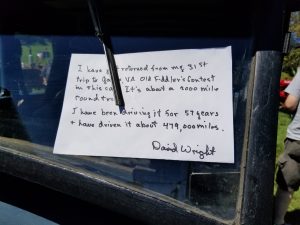 I have just returned from my 31st
trip to Galax, VA Old Fiddler's Contest
in this car. It's about a 1000 mile
round trip.
I have been driving it for 57 years
+ have driven it about 479,000 miles.
David Wright